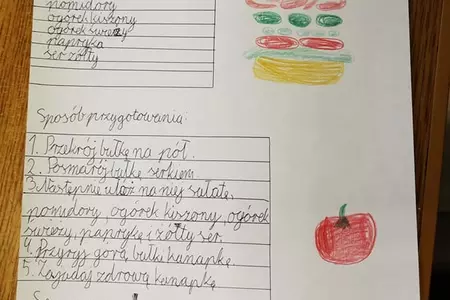 pomidory
ogórek kiszony
ogórek świeży
papryka
ser żółty
Sposób przygotowania:
1. Przekrój bułkę na pół.
2. Posmaruj bułkę serkiem.
3. Następnie ułóż na niej sałatę,
pomidory, ogórek kiszony, ogórek
świeży, paprykę i żółty ser.
4. Przyryj górą bułki kanapkę.
5. Zajadaj zdrową kanapkę